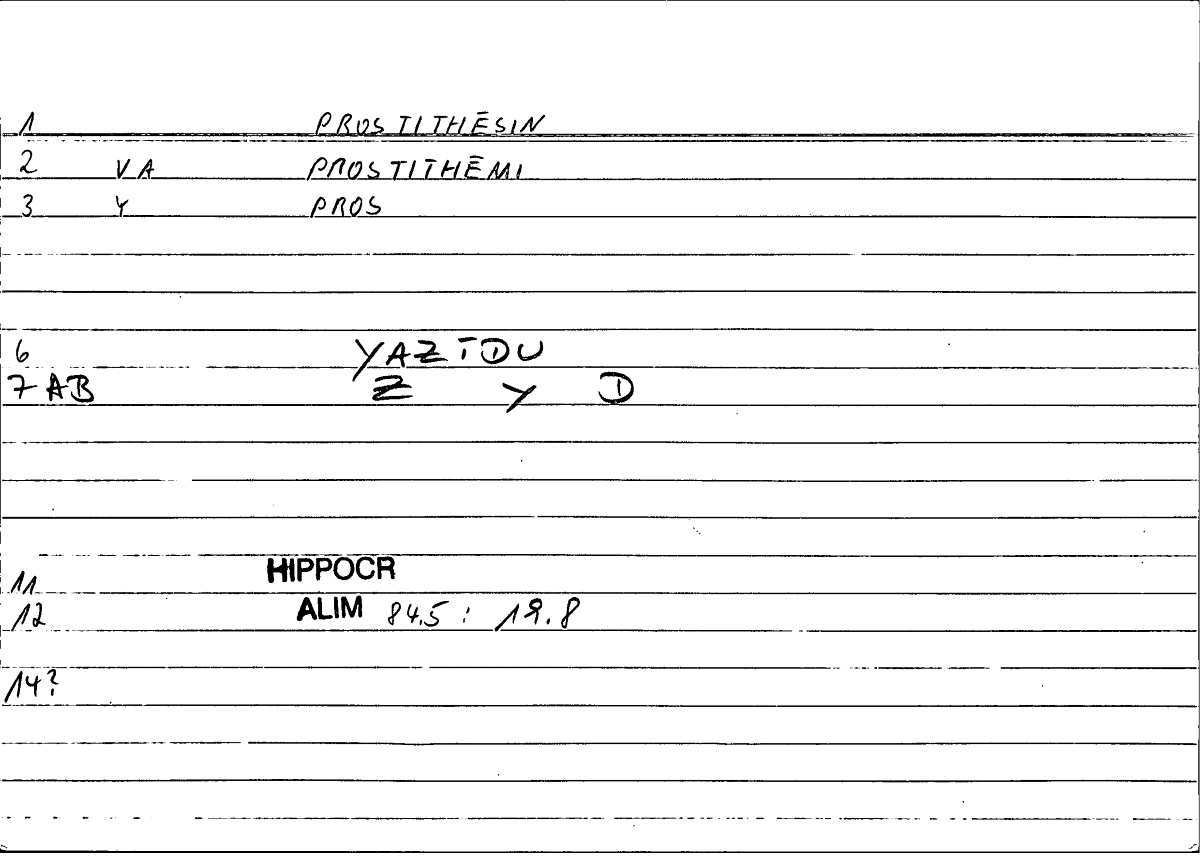 1 PROSTITHĒSIN
2 VA PROSTITHĒMI
3 Y PROS
6 YAZĪDU
7 AB Z Y D
11 HIPPOCR
12 ALIM 84.5 : 19.8
14?